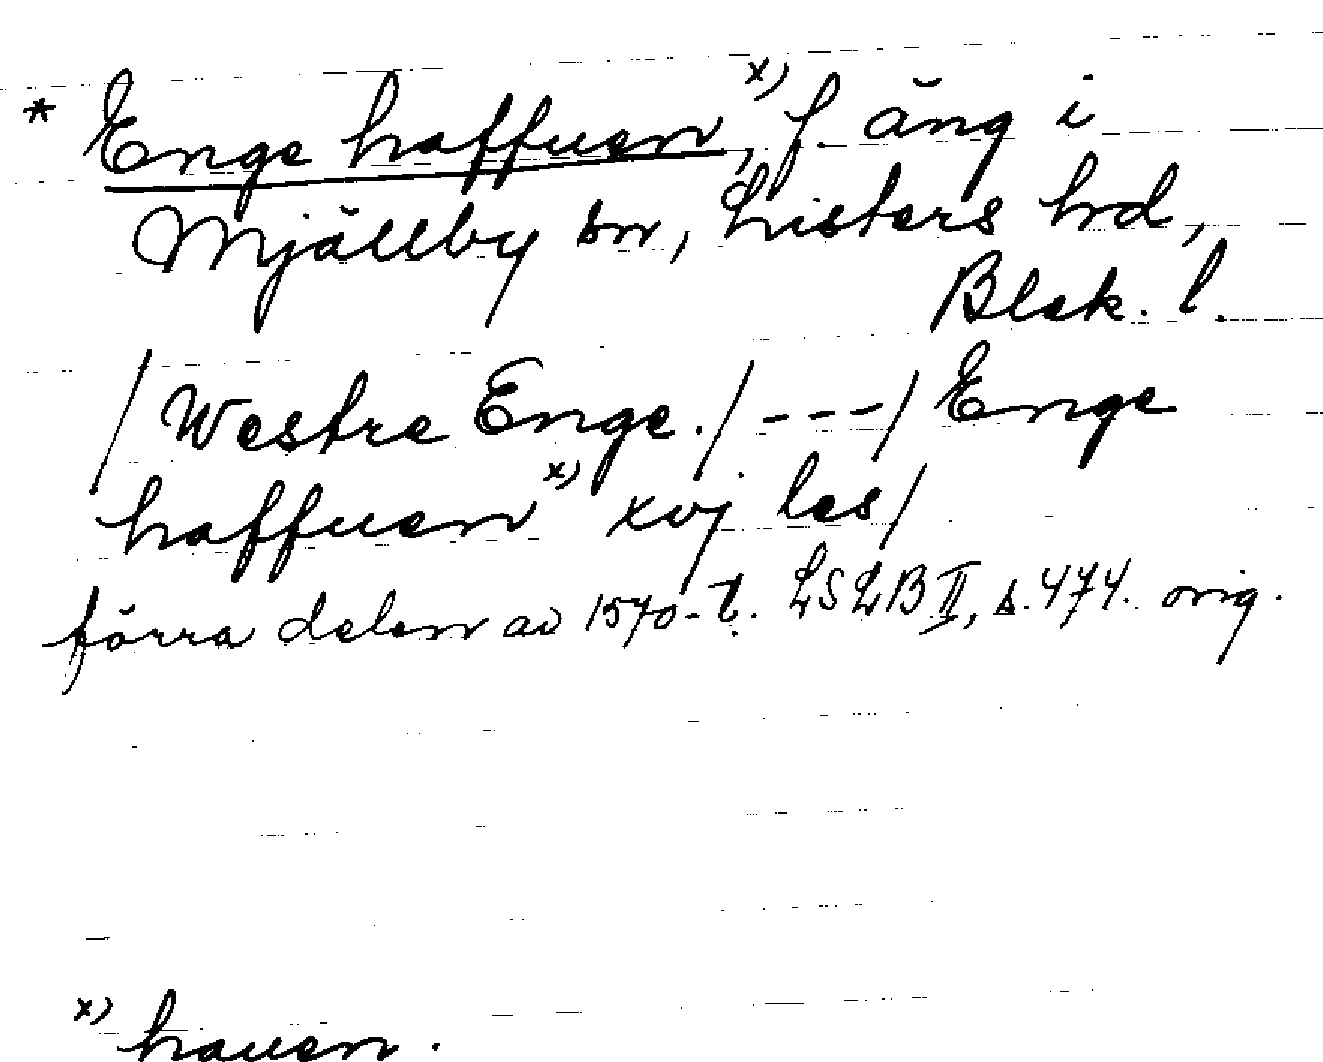 * Enge haffuen x), f. äng i
Mjällby sn, Listers hd,
Blek. l.
/Westre Enge./ - - - / Enge
haffuen x) xvj les/
förra delen av 1570-t. LSLB II, s. 474. orig.
x) hauen.